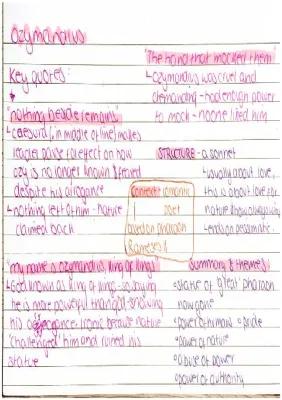 ozymandius
Key quotes:
"nothing beside remains"
↳ caesura (in middle of line) makes
reader pause for effect on how
ozy is no longer known & feared
despite his arrogance
↳ nothing left of him - nature
claimed back
"my name is ozymandius, king of kings"
↳ God known as king of kings - so saying
he is more powerful than god - showing
his arrogance. Ironic because nature
'challenged' him and ruined his
statue
"The hand that mocked them"
↳ ozymandius was cruel and
demanding - had enough power
to mock - no one liked him
STRUCTURE - a sonnet
↳ usually about love,
this is about love for
nature & how always wins
↳ ends on pessimistic
Context: romantic
poet
based on pharoah
Rameses II
Summary & themes
• statue of 'great' pharoah
now gone
• power of humans & pride
• power of nature
• abuse of power
• power of authority